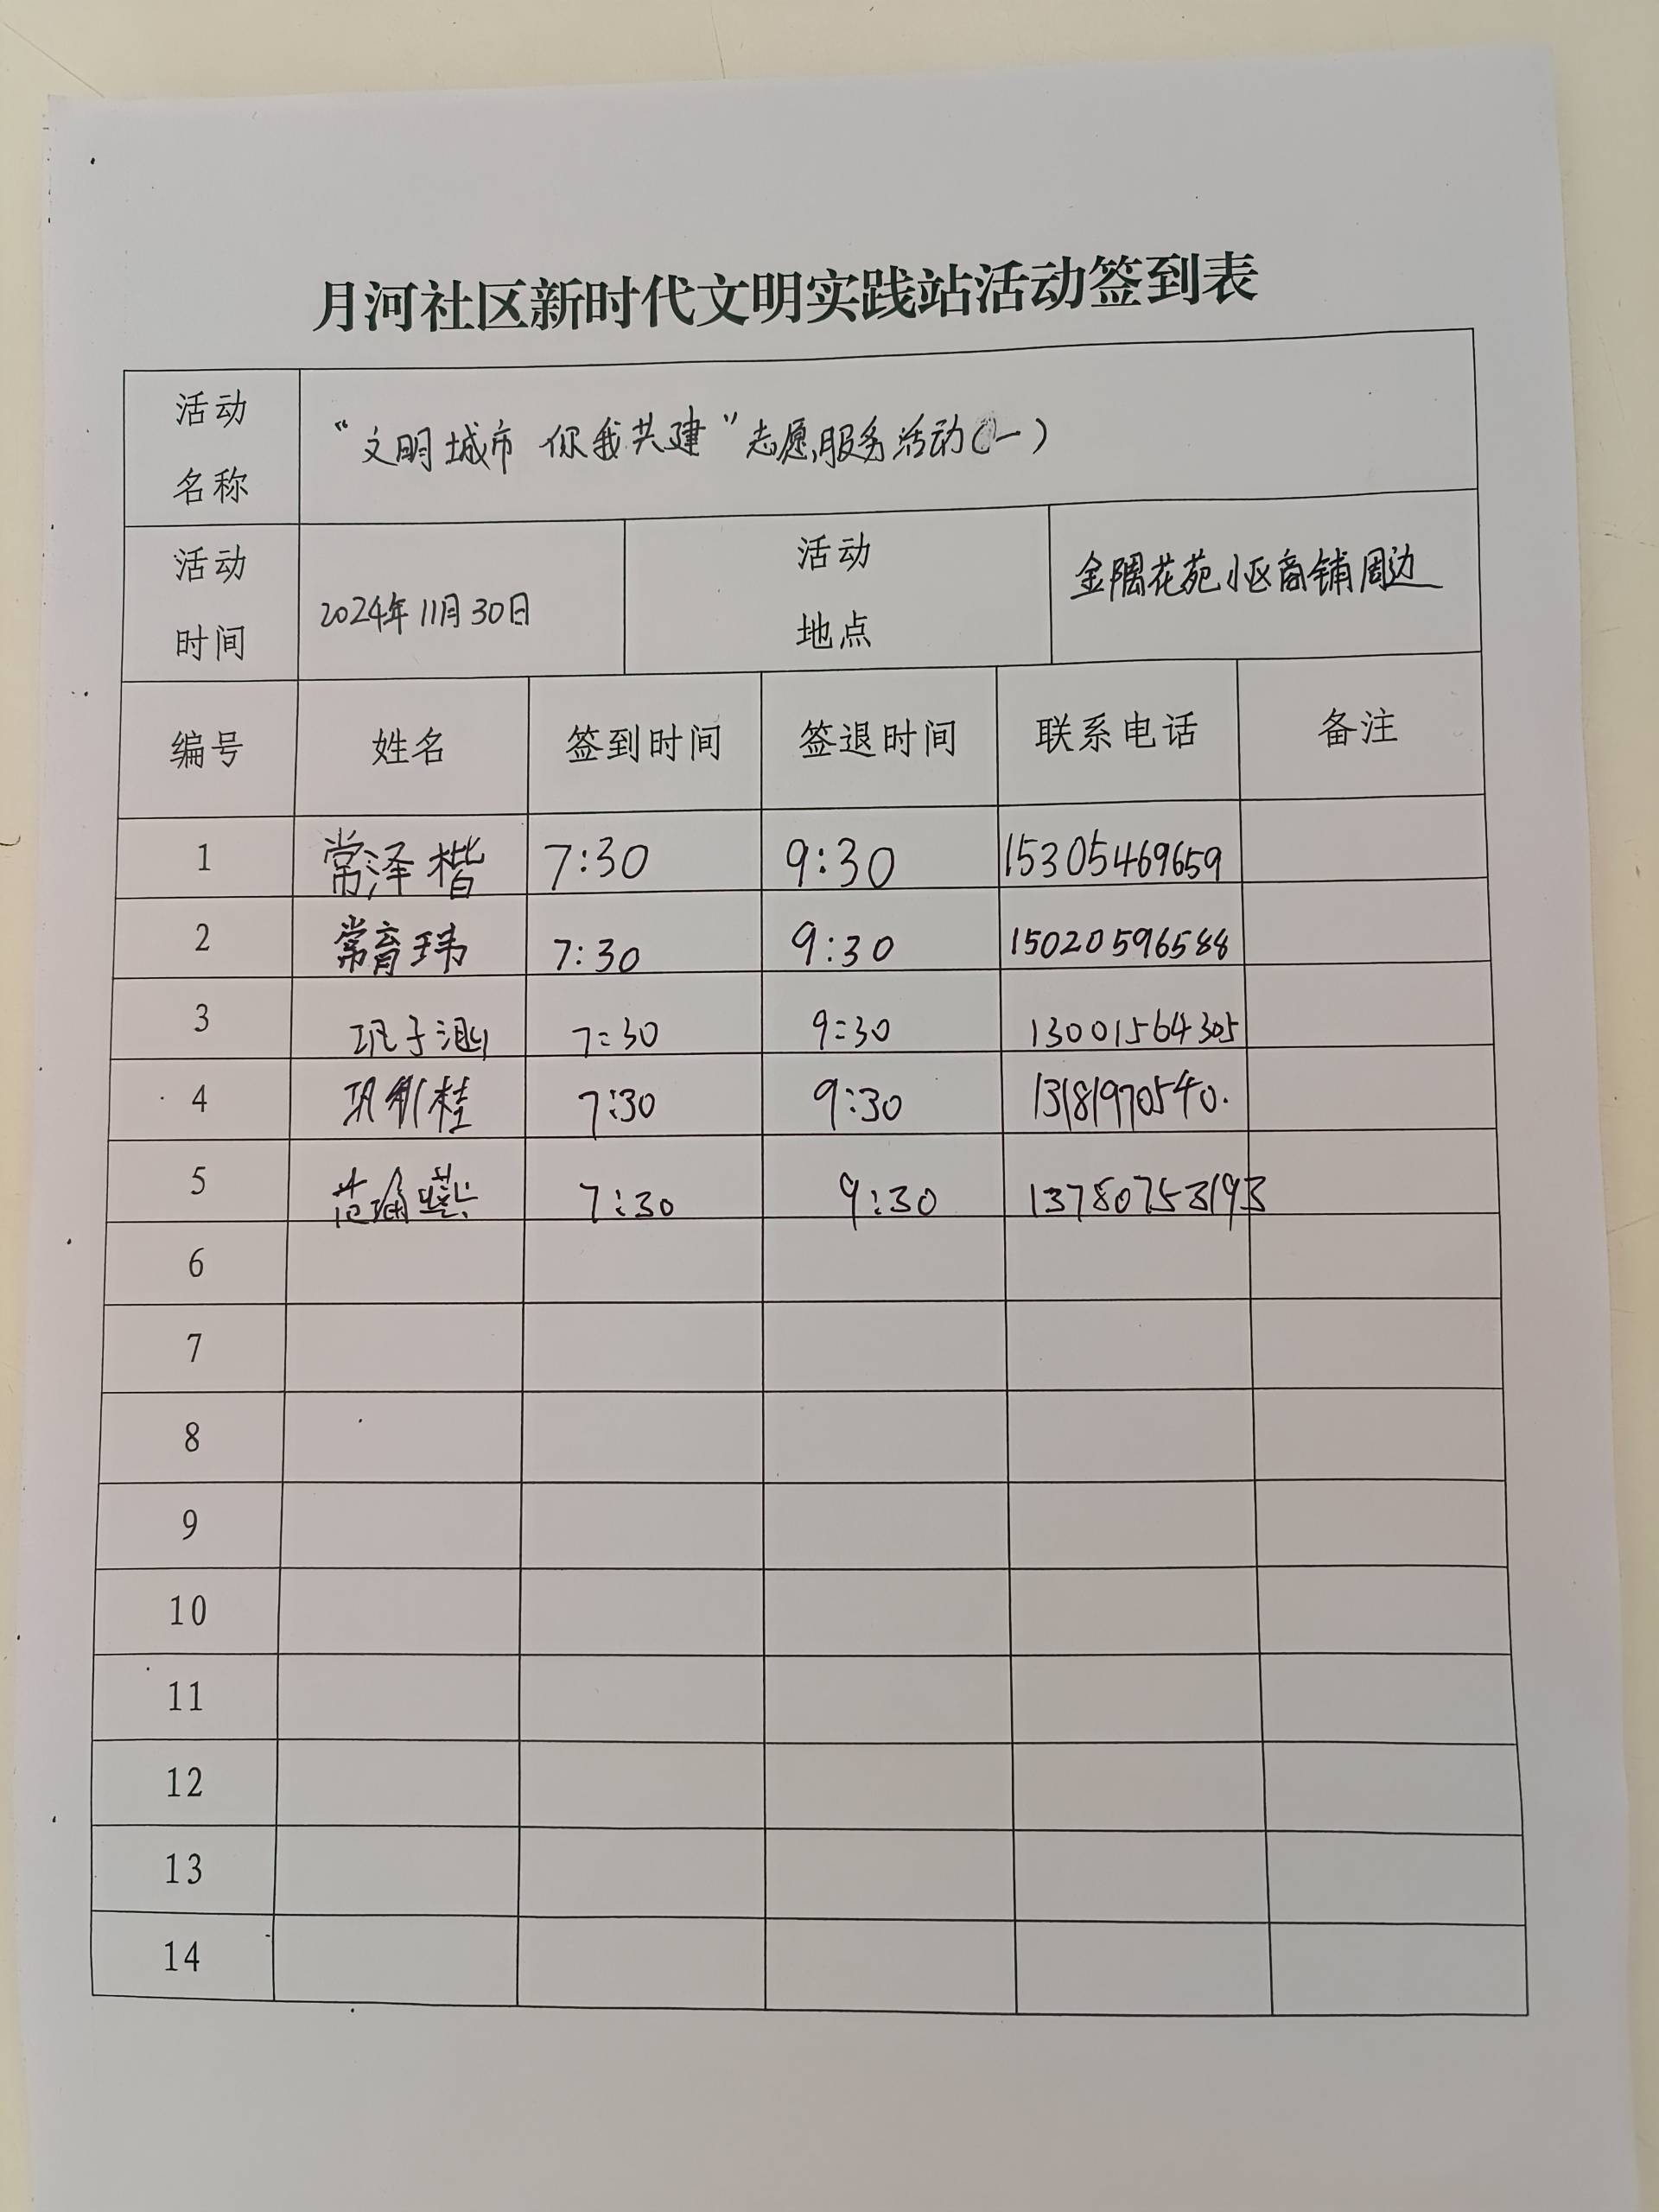 月河社区新时代文明实践站活动签到表
活动名称 “文明城市 你我共建”志愿服务活动(一)
活动时间 2024年11月30日 活动地点 金隅花苑小区商铺周边
编号 姓名 签到时间 签退时间 联系电话 备注
1 常泽楷 7:30 9:30 15305469659
2 常育玮 7:30 9:30 15020596588
3 巩子涵 7:30 9:30 13001564305
4 7:30 9:30 13181970540.
5 7:30 9:30 13780753193
6
7
8
9
10
11
12
13
14